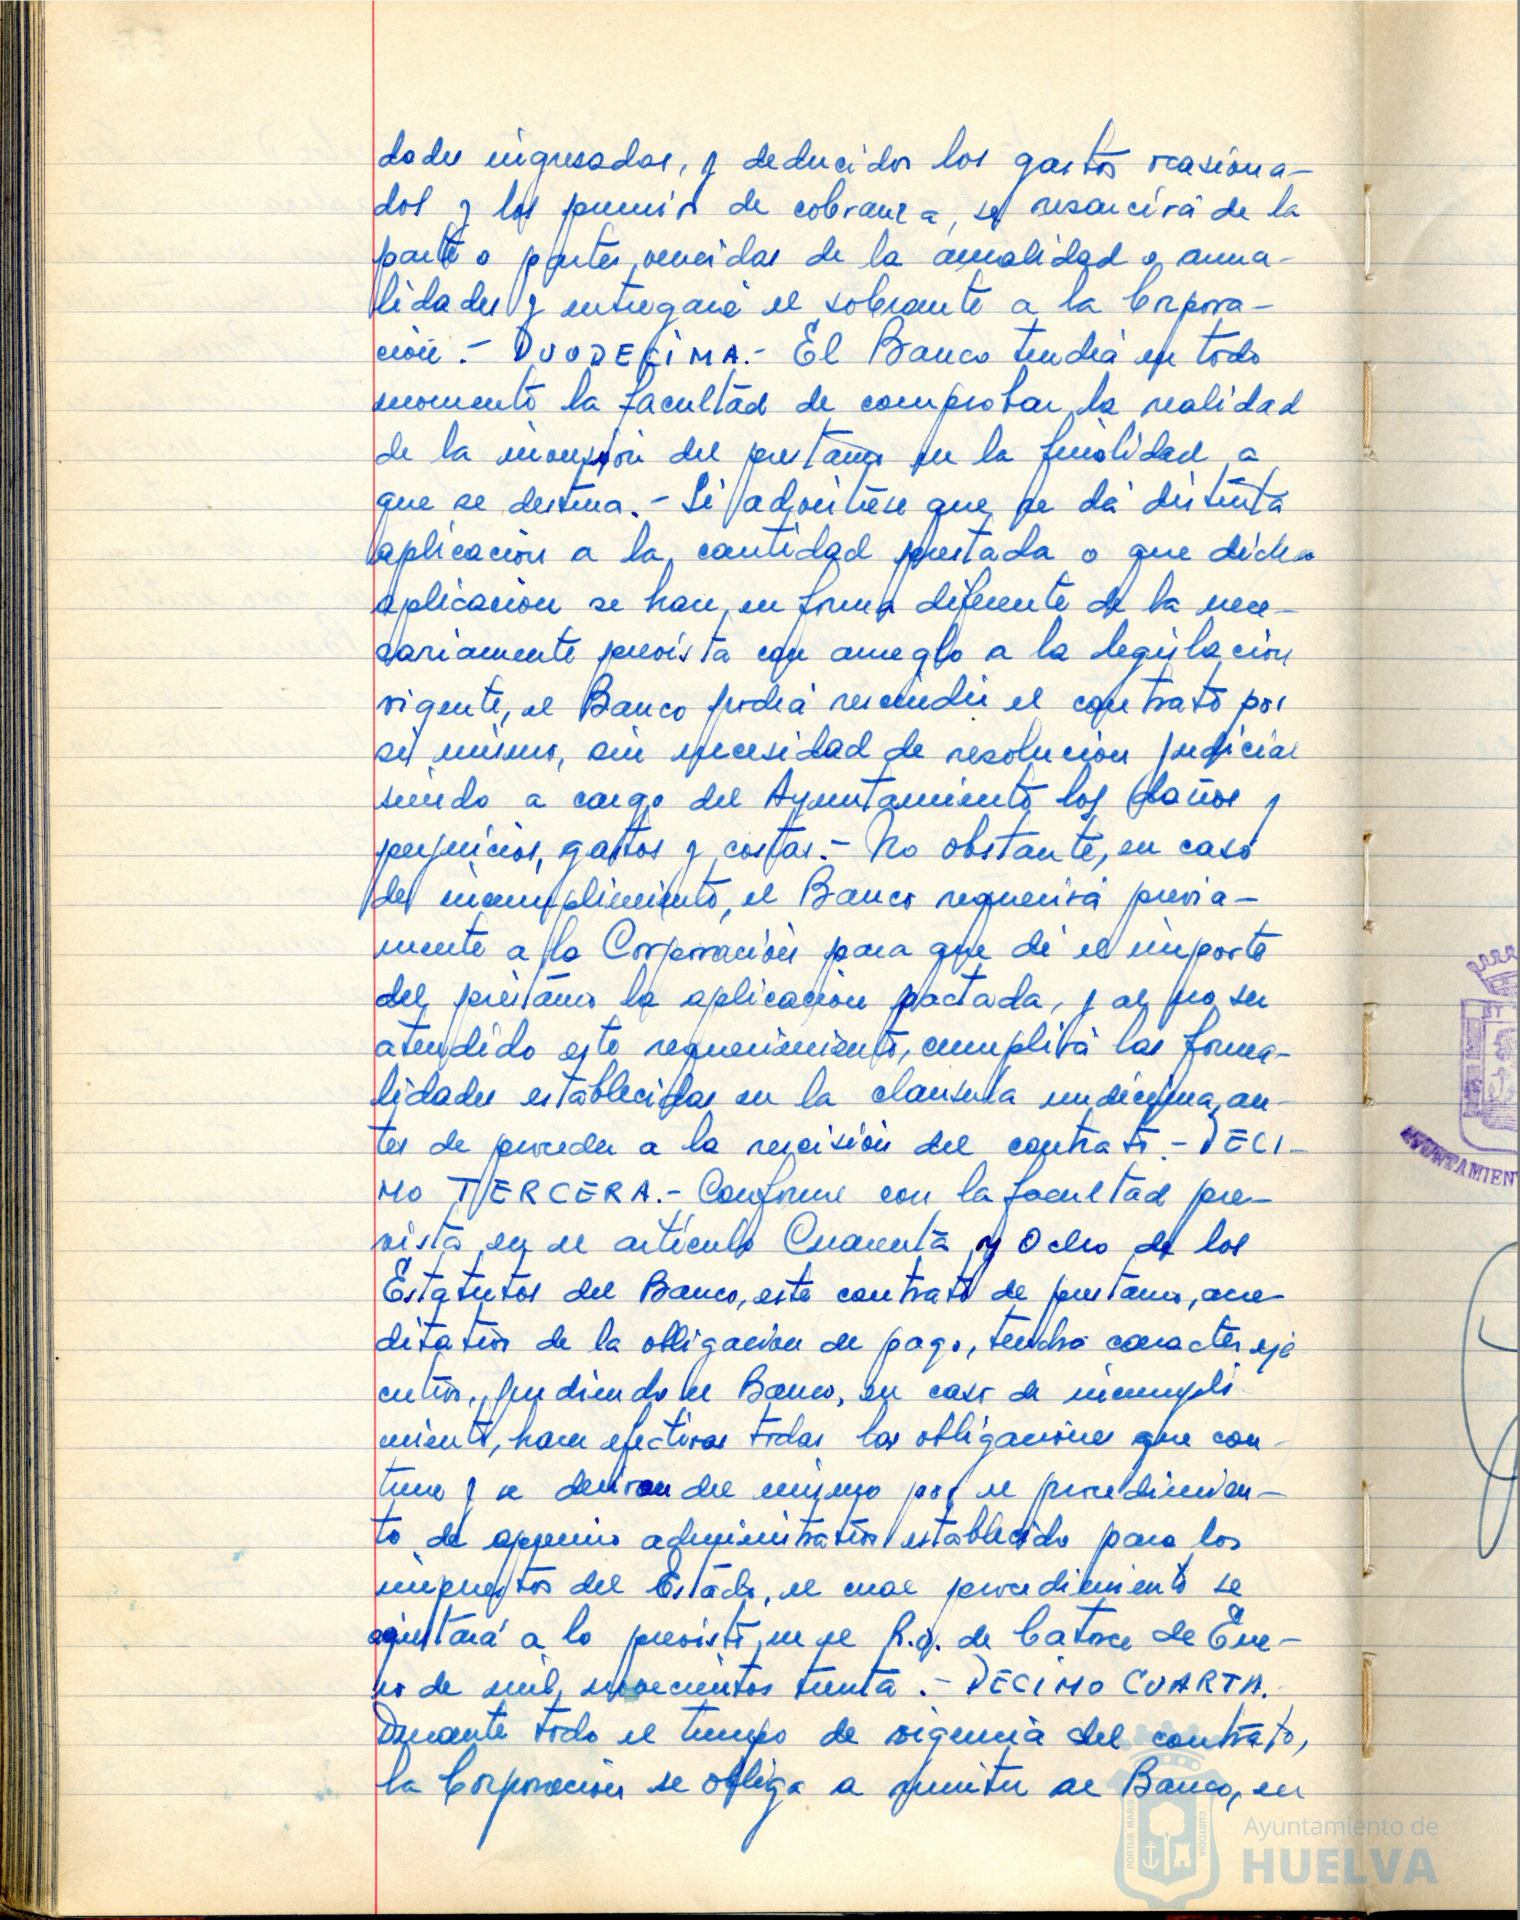 dades ingresadas, y deducidos los gastos ocasiona-
dos y los premios de cobranza, se resarcirá de la
parte o partes vencidas de la anualidad o anua-
lidades y entregará el sobrante a la Corpora-
ción.- DUODECIMA.- El Banco tendrá en todo
momento la facultad de comprobar la realidad
de la inversión del prestamo en la finalidad a
que se destina.- Si advirtiese que se dá distinta
aplicación a la cantidad prestada o que dicha
aplicación se hace en forma diferente de la nece-
sariamente prevista con arreglo a la legislación
vigente, el Banco podrá rescindir el contrato por
si mismo, sin necesidad de resolución judicial
siendo a cargo del Ayuntamiento los daños y
perjuicios, gastos y costas.- No obstante, en caso
de incumplimiento, el Banco requerirá previa-
mente a la Corporación para que dé el importe
del préstamo la aplicación pactada, y al no ser
atendido este requerimiento, cumplirá las forma-
lidades establecidas en la clausula undécima, an-
tes de proceder a la rescisión del contrato.- DECI-
MO TERCERA.- Conforme con la facultad pre-
vista en el artículo Cuarenta y Ocho de los
Estatutos del Banco, este contrato de prestamo, acre-
ditativo de la obligación de pago, tendrá caracter eje
cutivo, pudiendo el Banco, en caso de incumpli
miento, hacer efectivas todas las obligaciones que con-
tiene y se derivan del mismo por el procedimien-
to de apremio administrativo establecido para los
impuestos del Estado, el cual procedimiento se
ajustará a lo previsto en el R.O. de Catorce de Ene-
ro de mil novecientos treinta.- DECIMO CUARTA.
Durante todo el tiempo de vigencia del contrato,
la Corporación se obliga a remitir al Banco, en
AYUNTAMIEN
PORTUS MARIS
CUSTODIA
Ayuntamiento de
HUELVA